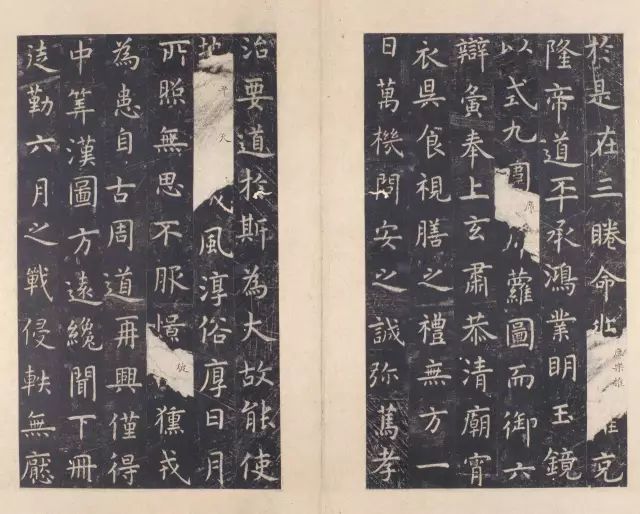 於是在三睠命兆庶樂推克
隆帝道丕承鴻業明玉鏡
以式九圍席蘿圖而御六
辯夤奉上玄肅恭清廟宵
衣旰食視膳之禮無方一
日萬機問安之誠弥篤孝
治要道於斯為大故能使
地平天成風淳俗厚日月
所照無思不服憬彼獯戎
為患自古周道再興僅得
中筭漢圖方遠纔聞下冊
徒勤六月之戰侵軼無厭